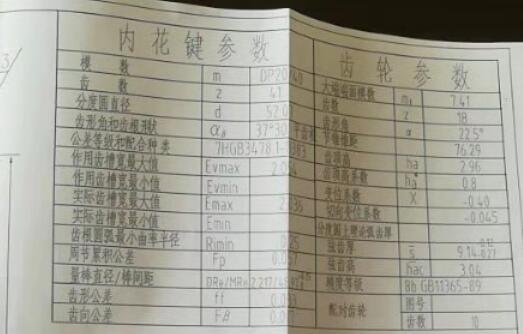 内花键参数
模数 m DP20/40
齿数 z 41
分度圆直径 d 52.0
齿形角和齿根形状 αD 37°30′
公差等级和配合种类 7H GB3478.1-1983
作用齿槽宽最大值 Evmax
作用齿槽宽最小值 Evmin
实际齿槽宽最大值 Emax
实际齿槽宽最小值 Emin
齿根圆弧最小曲率半径 Rimin 0.25
周节累积公差 Fp
量棒直径/棒间距 DRe/MRe 2.217/48
齿形公差 ff
齿向公差 Fβ
齿轮参数
大端端面模数 mt 7.41
齿数 z 18
齿形角 α 22.5°
节锥距 76.29
齿顶高 ha 2.96
齿顶高系数 ha* 0.8
变位系数 X -0.40
切向变位系数 -0.045
分度圆上理论弧齿厚
弦齿厚 s̄ 9.14
弦齿高 h̄ac 3.04
精度等级 8b GB11365-89
配对齿轮 图号
齿数 10